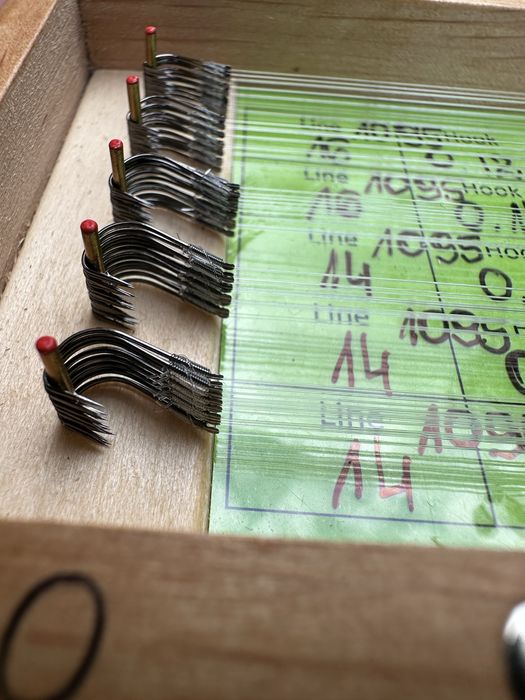 Line 1095 Hook
16 0.12
Line 1095 Hook
16 0.1
Line 1095 Hoo
14 0.
Line 1095
14 0
Line 1095
14
0